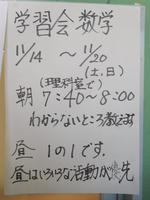 学習会 数学
11/14 ～ 11/20
(土,日)
(理科室で)
朝 7:40～8:00
わからないところ教えます
昼 1の1です。
昼はいろいろな活動が優先